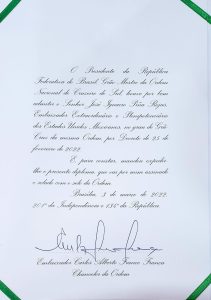 O Presidente da República
Federativa do Brasil, Grão-Mestre da Ordem
Nacional do Cruzeiro do Sul, houve por bem
admitir o Senhor José Ignacio Piña Rojas,
Embaixador Extraordinário e Plenipotenciário
dos Estados Unidos Mexicanos, no grau de Grã-
Cruz da mesma Ordem, por Decreto de 25 de
fevereiro de 2022.
E, para constar, mandou expedir-
lhe o presente diploma, que vai por mim assinado
e selado com o selo da Ordem.
Brasília, 3 de março de 2022,
201º da Independência e 134º da República.
Embaixador Carlos Alberto Franco França
Chanceler da Ordem